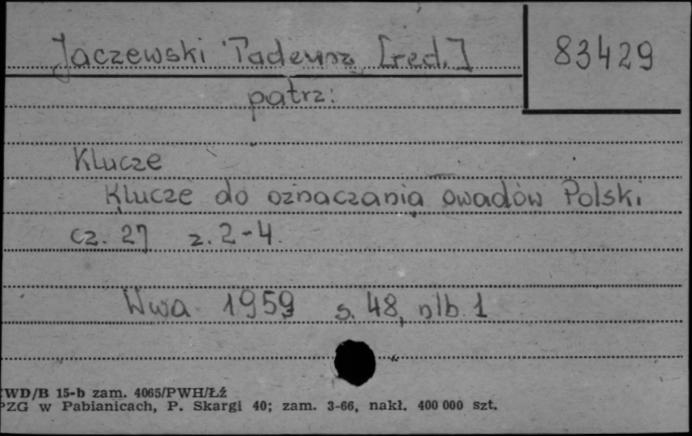 Jaczewski Tadeusz [red.]
83429
patrz:
Klucze
Klucze do oznaczania owadów Polski
cz. 27 z. 2-4.
Wwa 1959 s. 48, nlb. 1
WD/B 15-b zam. 4065/PWH/Łź
PZG w Pabianicach, P. Skargi 40; zam. 3-66, nakł. 400 000 szt.